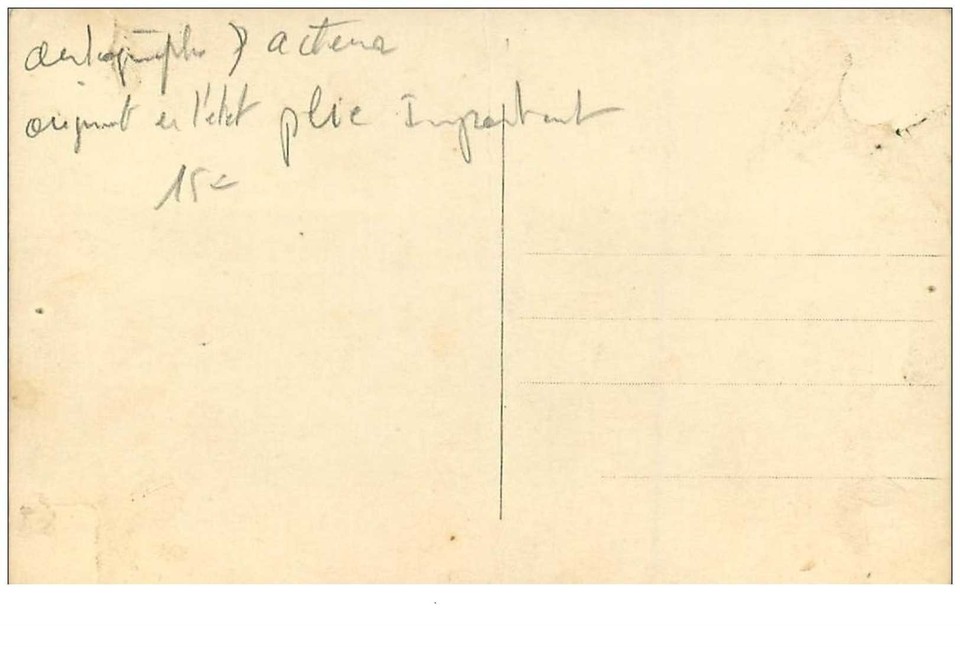 autographe 7 acteurs
original en l'état plie Important
15€